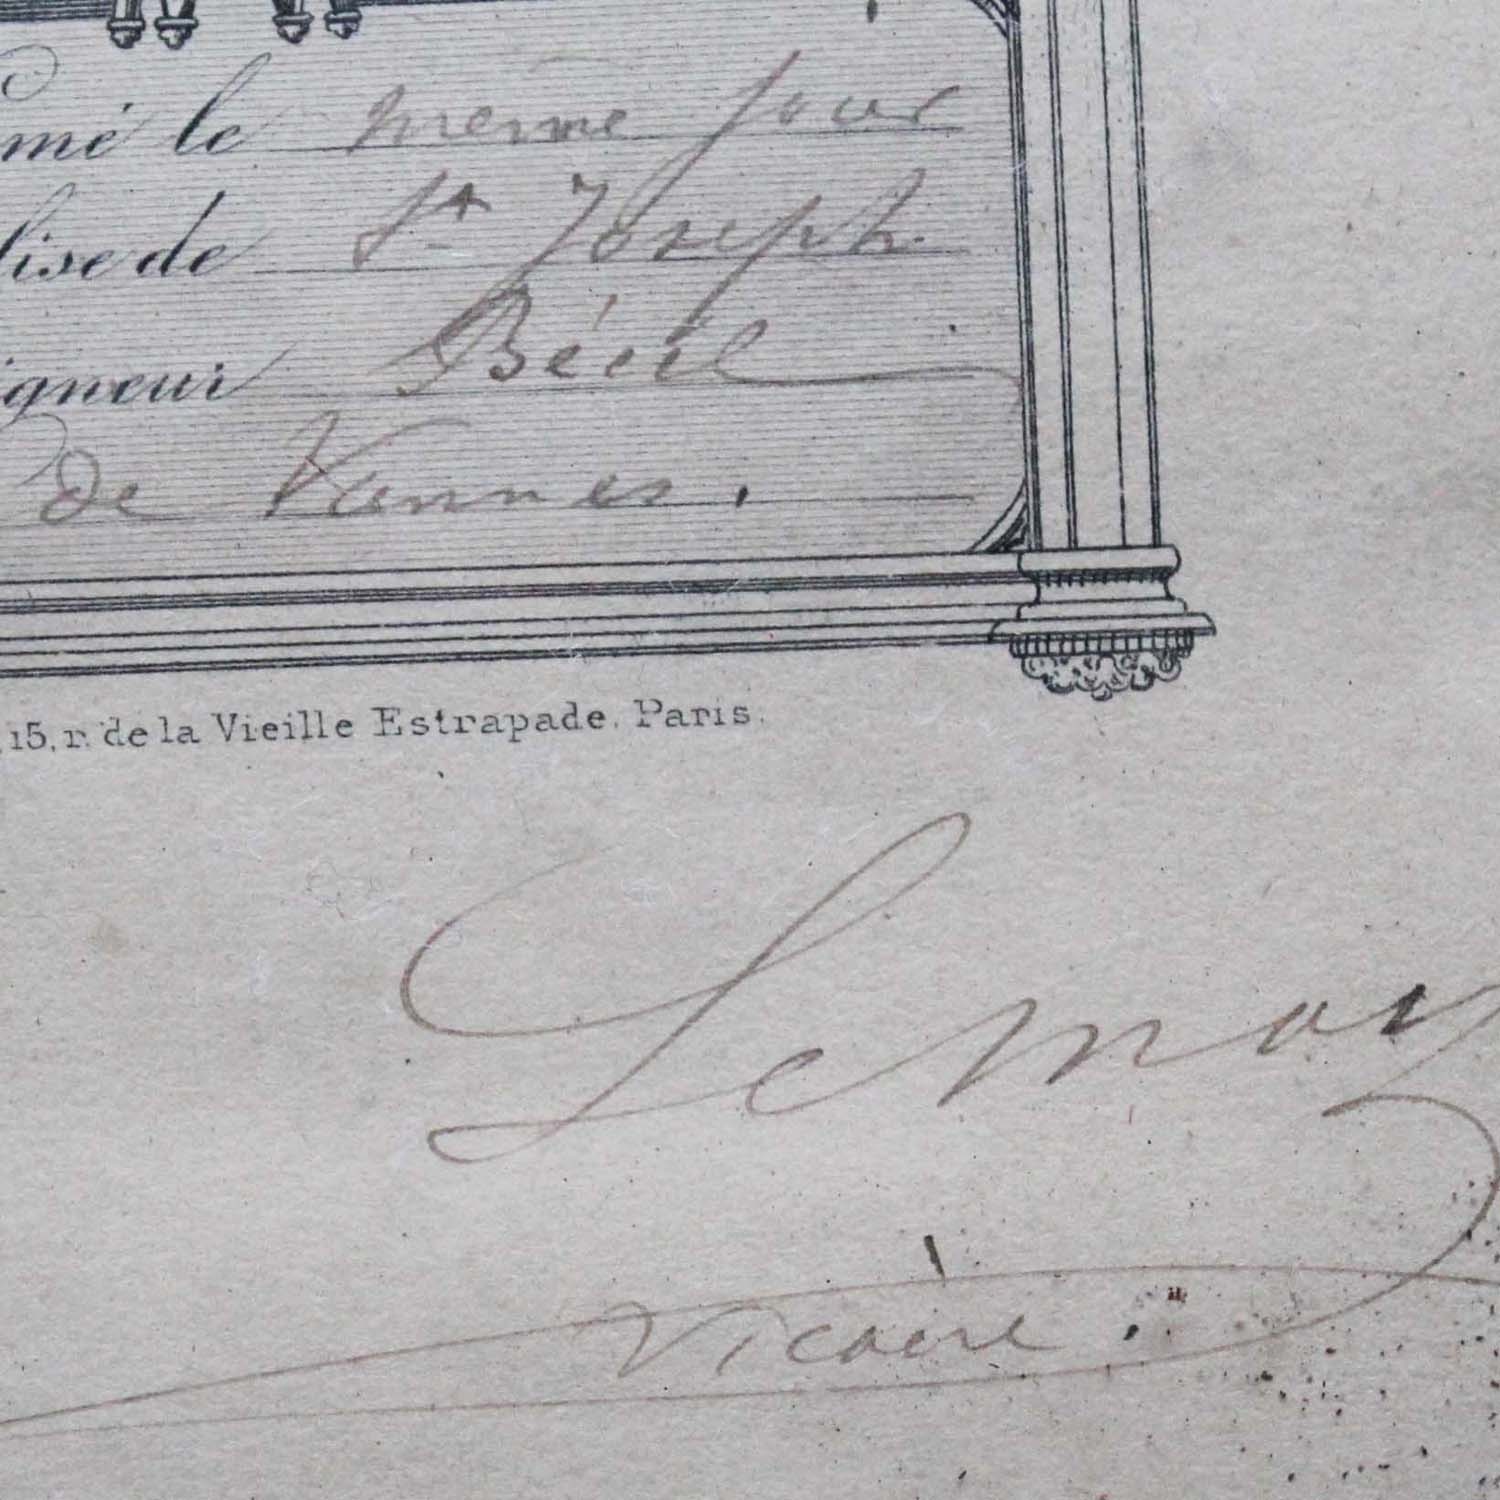 mé le même jour
lise de St Joseph
igneur Bécel
de Vannes.
, 15, r. de la Vieille Estrapade. Paris.
Lemoy
Vicaire.